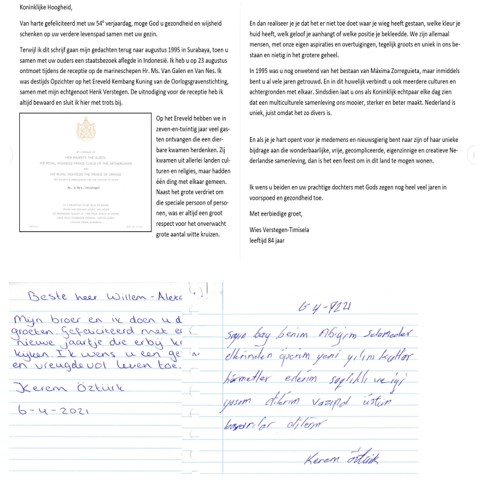 Koninklijke Hoogheid,
Van harte gefeliciteerd met uw 54e verjaardag, moge God u gezondheid en wijsheid
schenken op uw verdere levenspad samen met uw gezin.
Terwijl ik dit schrijf gaan mijn gedachten terug naar augustus 1995 in Surabaya, toen u
samen met uw ouders een staatsbezoek aflegde in Indonesië. Ik heb u op 23 augustus
ontmoet tijdens de receptie op de marineschepen Hr. Ms. Van Galen en Van Nes. Ik
was destijds Opzichter op Ereveld Kembang Kuning van de Oorlogsgravenstichting,
samen met mijn echtgenoot Henk Verstegen. De uitnodiging voor de receptie heb ik
altijd bewaard en sluit ik hier met trots bij.
Op het Ereveld hebben we in
zeven-en-twintig jaar veel gas-
ten ontvangen die een dier-
bare kwamen herdenken. Zij
kwamen uit allerlei landen cul-
turen en religies, maar hadden
één ding met elkaar gemeen.
Naast het grote verdriet om
die speciale persoon of perso-
nen, was er altijd een groot
respect voor het onverwacht
grote aantal witte kruizen.
En dan realiseer je je dat het er niet toe doet waar je wieg heeft gestaan, welke kleur je
huid heeft, welk geloof je aanhangt of welke positie je bekleedde. We zijn allemaal
mensen, met onze eigen aspiraties en overtuigingen, tegelijk groots en uniek in ons be-
staan en nietig in het grotere geheel.
In 1995 was u nog onwetend van het bestaan van Máxima Zorreguieta, maar inmiddels
bent u al vele jaren getrouwd. En in dit huwelijk verbindt u ook meerdere culturen en
achtergronden met elkaar. Sindsdien laat u ons als Koninklijk echtpaar elke dag zien
dat een multiculturele samenleving ons mooier, sterker en beter maakt. Nederland is
uniek, juist omdat het zo divers is.
En als je je hart opent voor je medemens en nieuwsgierig bent naar zijn of haar unieke
bijdrage aan die wonderbaarlijke, vrije, gecompliceerde, eigenzinnige en creatieve Ne-
derlandse samenleving, dan is het een feest om in dit land te mogen wonen.
Ik wens u beiden en uw prachtige dochters met Gods zegen nog heel veel jaren in
voorspoed en gezondheid toe.
Met eerbiedige groet,
Wies Verstegen-Timisela
leeftijd 84 jaar
Beste heer Willem-Alexa
Mijn broer en ik doen u d
groeten. Gefeliciteerd met e
nieuwe jaartje die erbij k
kijken. Ik wens u een ge
en vreugdevol leven toe.
Kerem Öztürk
6-4-2021
6-4-2021
Sayın bay benim Abiyim Selamader
ellerinden öperim yeni yılını kutlar
hürmetler ederim sağlıklı ve iyi
yaşam dilerim üstün
başarılar dilerim
Kerem Öztürk